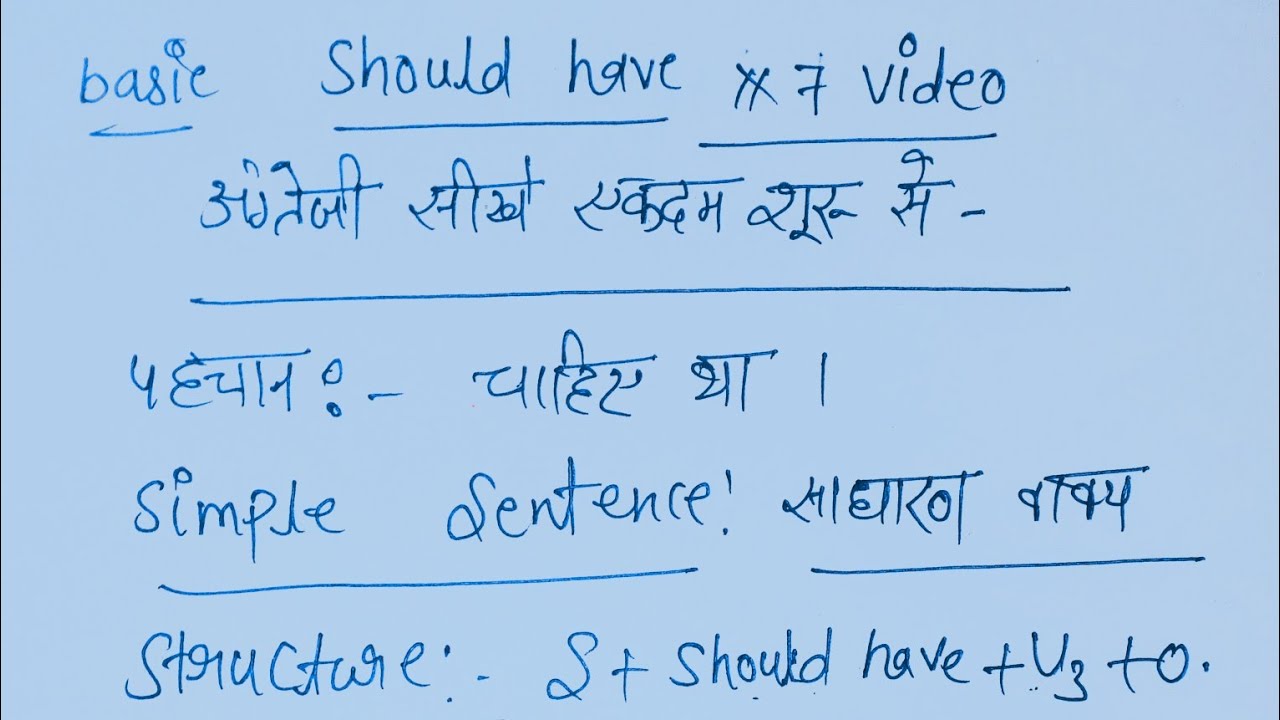 basic Should have ** 7 video
अंग्रेजी सीखे एकदम शूरू से -
पहचान :- चाहिए था ।
Simple Sentence: साधारण वाक्य
Structure:- S + Should have + V3 + O.